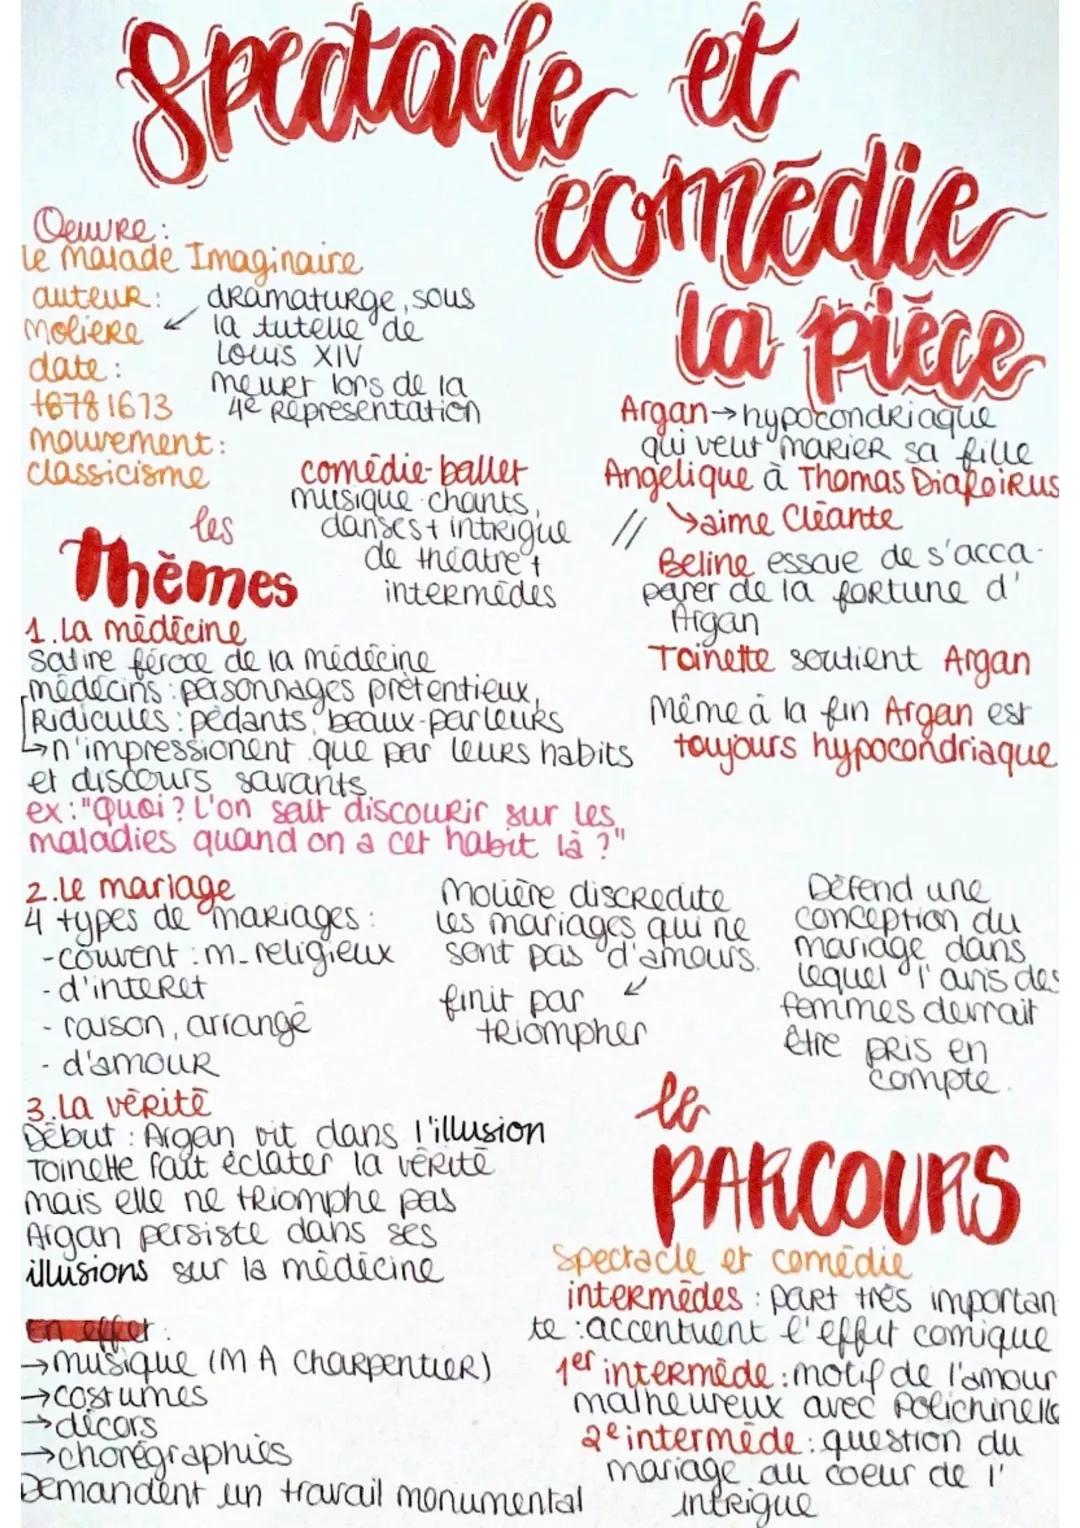 Spectacle et
comédie
la pièce
Oeuvre:
Le Malade Imaginaire
auteur:
Molière
date:
1673
mouvement:
classicisme
dramaturge, sous
la tutelle de
Louis XIV
meurt lors de la
4e représentation
comédie-ballet
musique chants,
danses + intrigue
de théatre +
intermèdes
Argan → hypocondriaque
qui veut marier sa fille
Angélique à Thomas Diafoirus
// ↳ aime Cléante
Beline essaie de s'acca-
parer de la fortune d'
Argan
Toinette soutient Argan
Même à la fin Argan est
toujours hypocondriaque
les
Thèmes
1. La médécine
Satire féroce de la médécine
médécins : personnages prétentieux,
Ridicules : pédants, beaux-parleurs
↳ n'impressionent que par leurs habits
et discours savants
ex: "Quoi ? L'on sait discourir sur les
maladies quand on a cet habit là ?"
2. Le mariage
4 types de mariages :
- couvent : m. religieux
- d'interet
- raison, arrangé
- d'amour
Molière discrédite
les mariages qui ne
sont pas d'amours.
finit par ↙
triompher
Défend une
conception du
mariage dans
lequel l'avis des
femmes devrait
être pris en
compte.
3. La vérité
Début : Argan vit dans l'illusion
Toinette fait éclater la vérité
mais elle ne triomphe pas
Argan persiste dans ses
illusions sur la médécine
En effet :
→ musique (M A Charpentier)
→ costumes
→ décors
→ chorégraphies
Demandent un travail monumental
le
PARCOURS
Spectacle et comédie
intermèdes : part très importan
te : accentuent l'effet comique
1er intermède : motif de l'amour
malheureux avec Polichinelle
2e intermède : question du
mariage au coeur de l'
intrigue